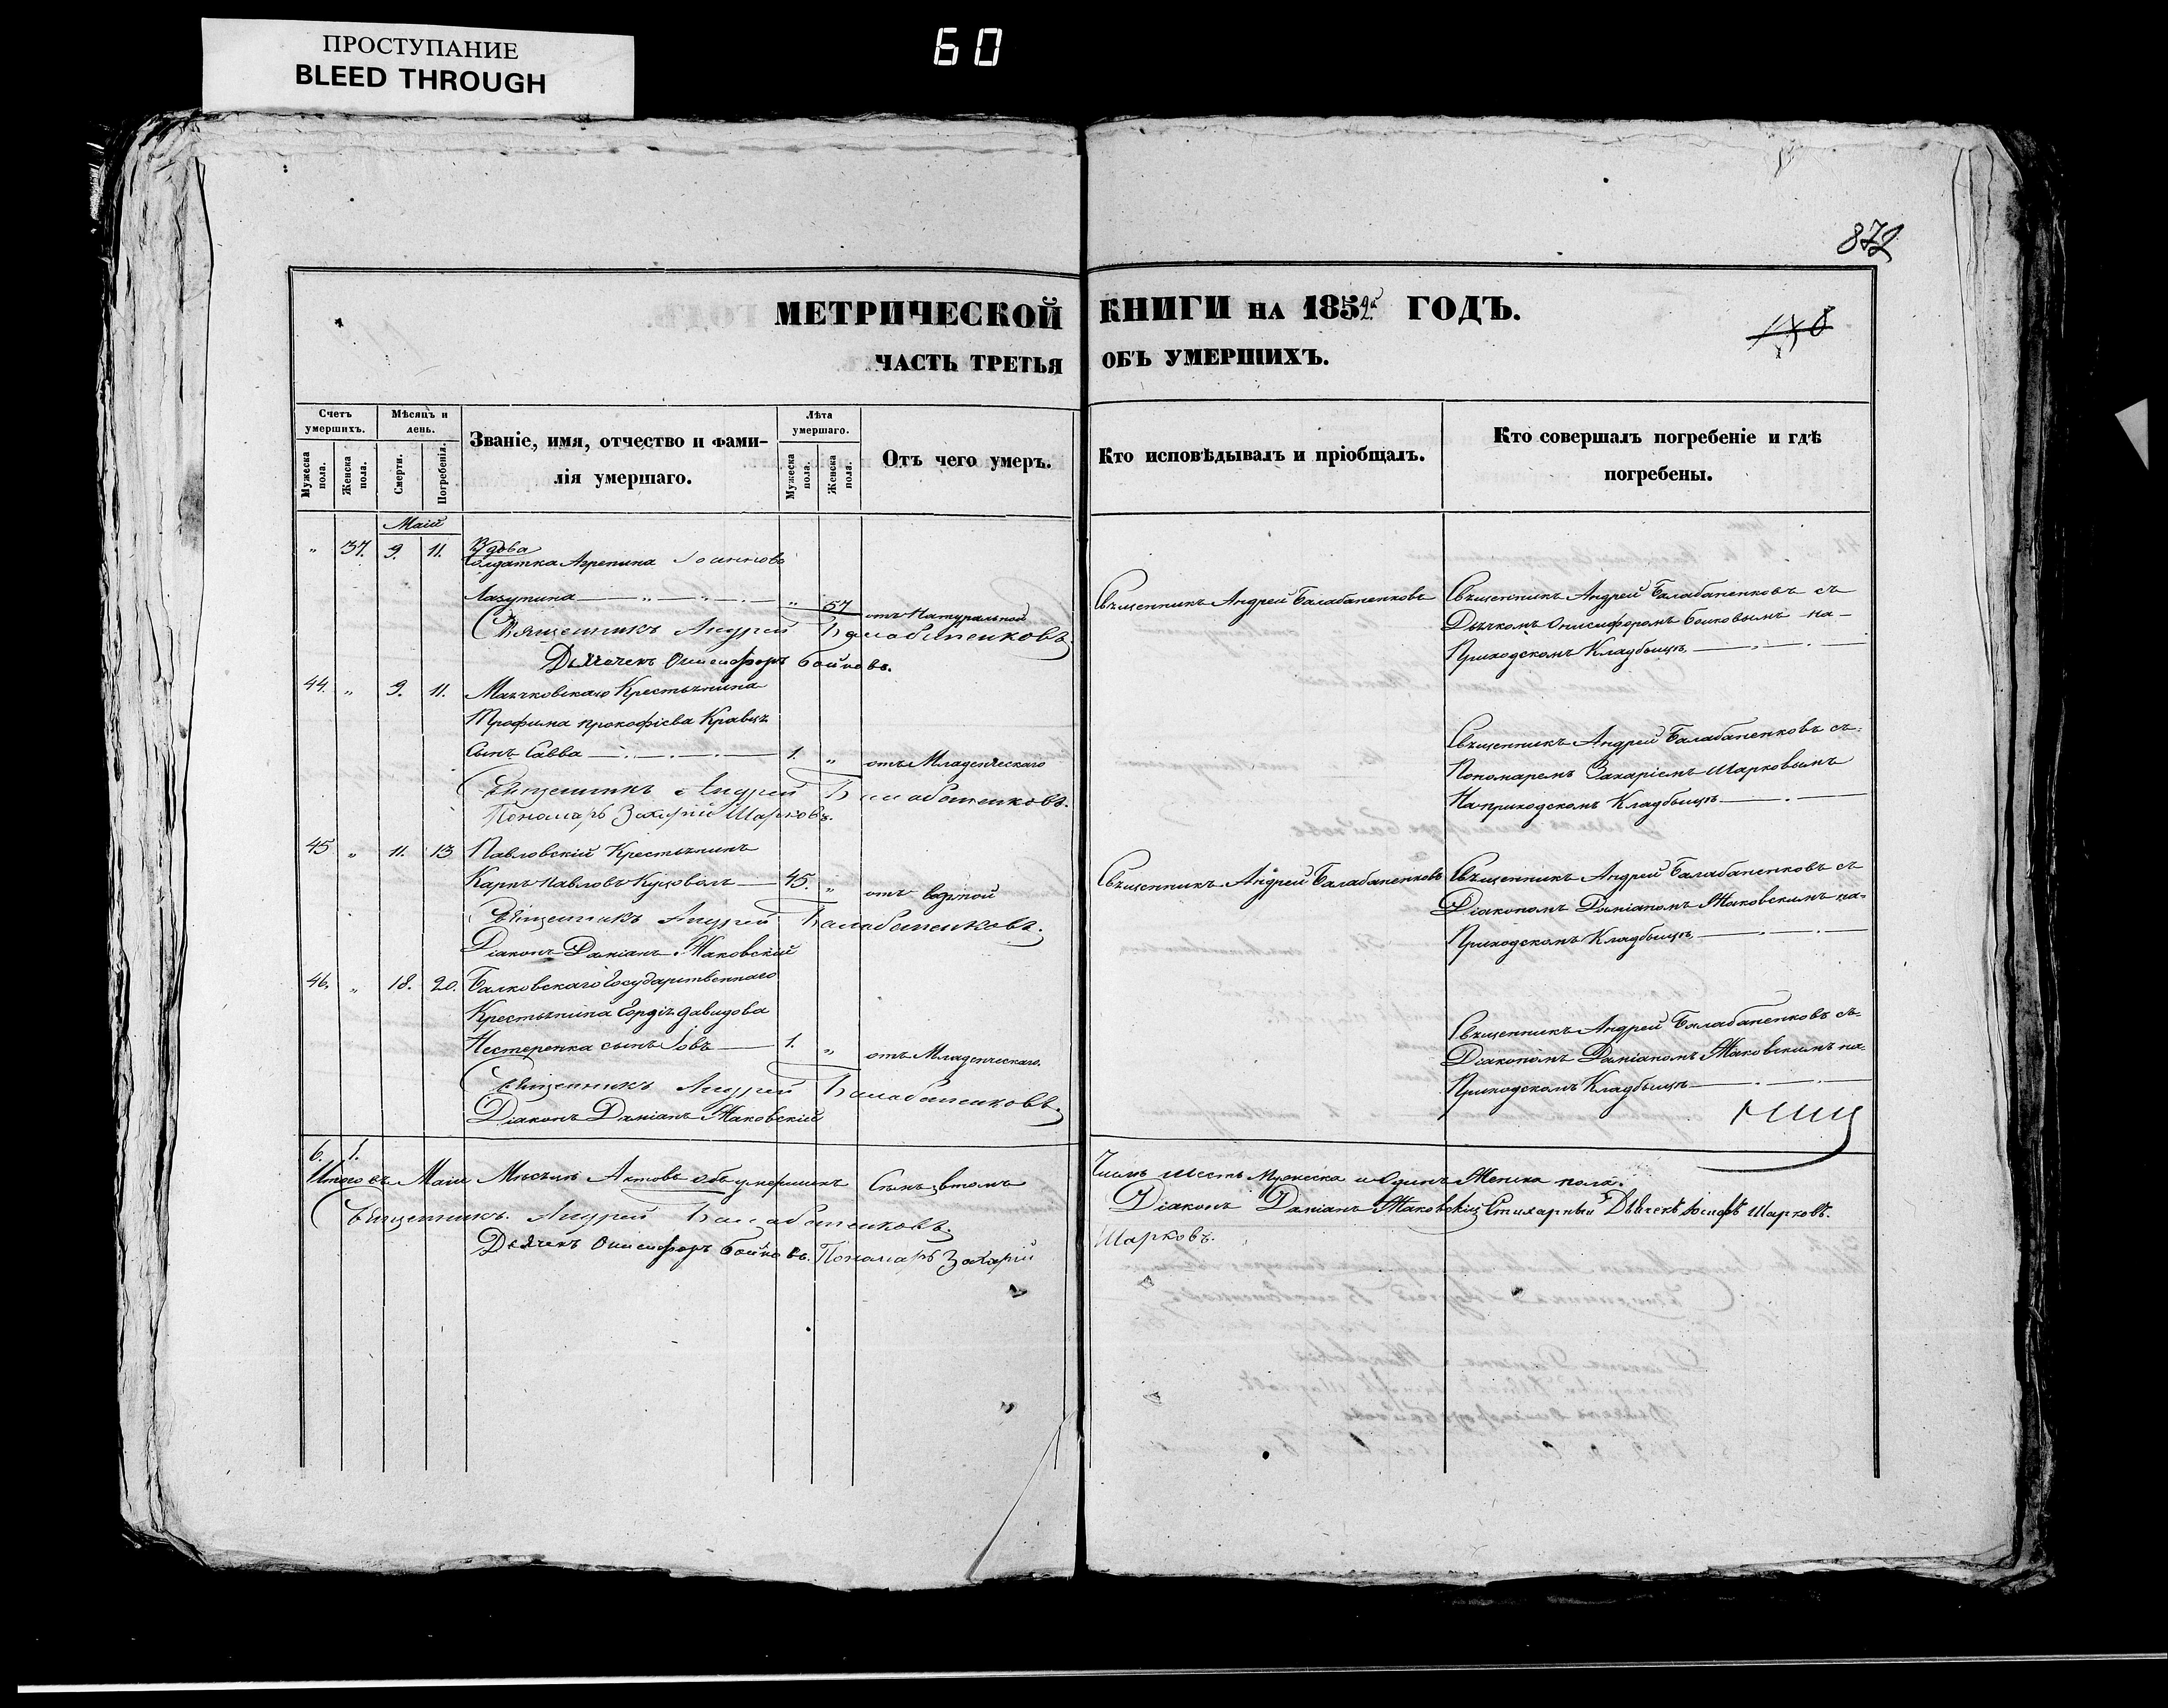 ПРОСТУПАНИЕ
BLEED THROUGH
60
872
МЕТРИЧЕСКОЙ КНИГИ НА 1852й ГОДЪ.
ЧАСТЬ ТРЕТЬЯ ОБЪ УМЕРШИХЪ.
Счетъ умершихъ.
Мужеска пола.
Женска пола.
Мѣсяцъ и день.
Смерти.
Погребенія.
Званіе, имя, отчество и фамилія умершаго.
Лѣта умершаго.
Мужеска пола.
Женска пола.
Отъ чего умеръ.
Кто исповѣдывалъ и пріобщалъ.
Кто совершалъ погребеніе и гдѣ погребены.
Маій
" 37. 9. 11. Вдова
Солдатка Агрепина Іоаннова
Лазутина " 57 отъ Натуральной
Священникъ Андрей Балабаненковъ
Священникъ Андрей Балабаненковъ съ
Дьячкомъ Онисифоромъ Бойковымъ на
Приходскомъ Кладбищѣ
Священникъ Андрей Балабаненковъ.
Дьячекъ Онисифоръ Бойковъ.
44. " 9. 11. Маячковскаго Крестьянина
Трофима Прокофіева Кравца
Сынъ Савва 1. " отъ Младенческаго
Священникъ Андрей Балабаненковъ съ
Пономаремъ Захаріемъ Шарковымъ
На приходскомъ Кладбищѣ
Священникъ Андрей Балабаненковъ.
Пономарь Захарій Шарковъ.
45 " 11. 13 Павловскій Крестьянинъ
Карпъ Павловъ 45. " отъ водяной
Священникъ Андрей Балабаненковъ
Священникъ Андрей Балабаненковъ съ
Діакономъ Даміаномъ Маковскимъ на
Приходскомъ Кладбищѣ
Священникъ Андрей Балабаненковъ.
Діаконъ Даміанъ Маковскій
46. " 18. 20. Балковскаго Государственнаго
Крестьянина Гордія Давидова
Нестеренка сынъ Іовъ 1. " отъ Младенческаго.
Священникъ Андрей Балабаненковъ съ
Діакономъ Даміаномъ Маковскимъ на
Приходскомъ Кладбищѣ
Священникъ Андрей Балабаненковъ.
Діаконъ Даміанъ Маковскій
6. 1.
Итого въ Маіи Мѣсяцѣ Актовъ объ умершихъ Семь, въ томъ
Числѣ Шесть Мужеска и Одинъ Женска пола.
Священникъ Андрей Балабаненковъ.
Діаконъ Даміанъ Маковскій Стихарный Дьячекъ Іосифъ Шарковъ.
Дьячекъ Онисифоръ Бойковъ. Пономарь Захарій
Шарковъ.